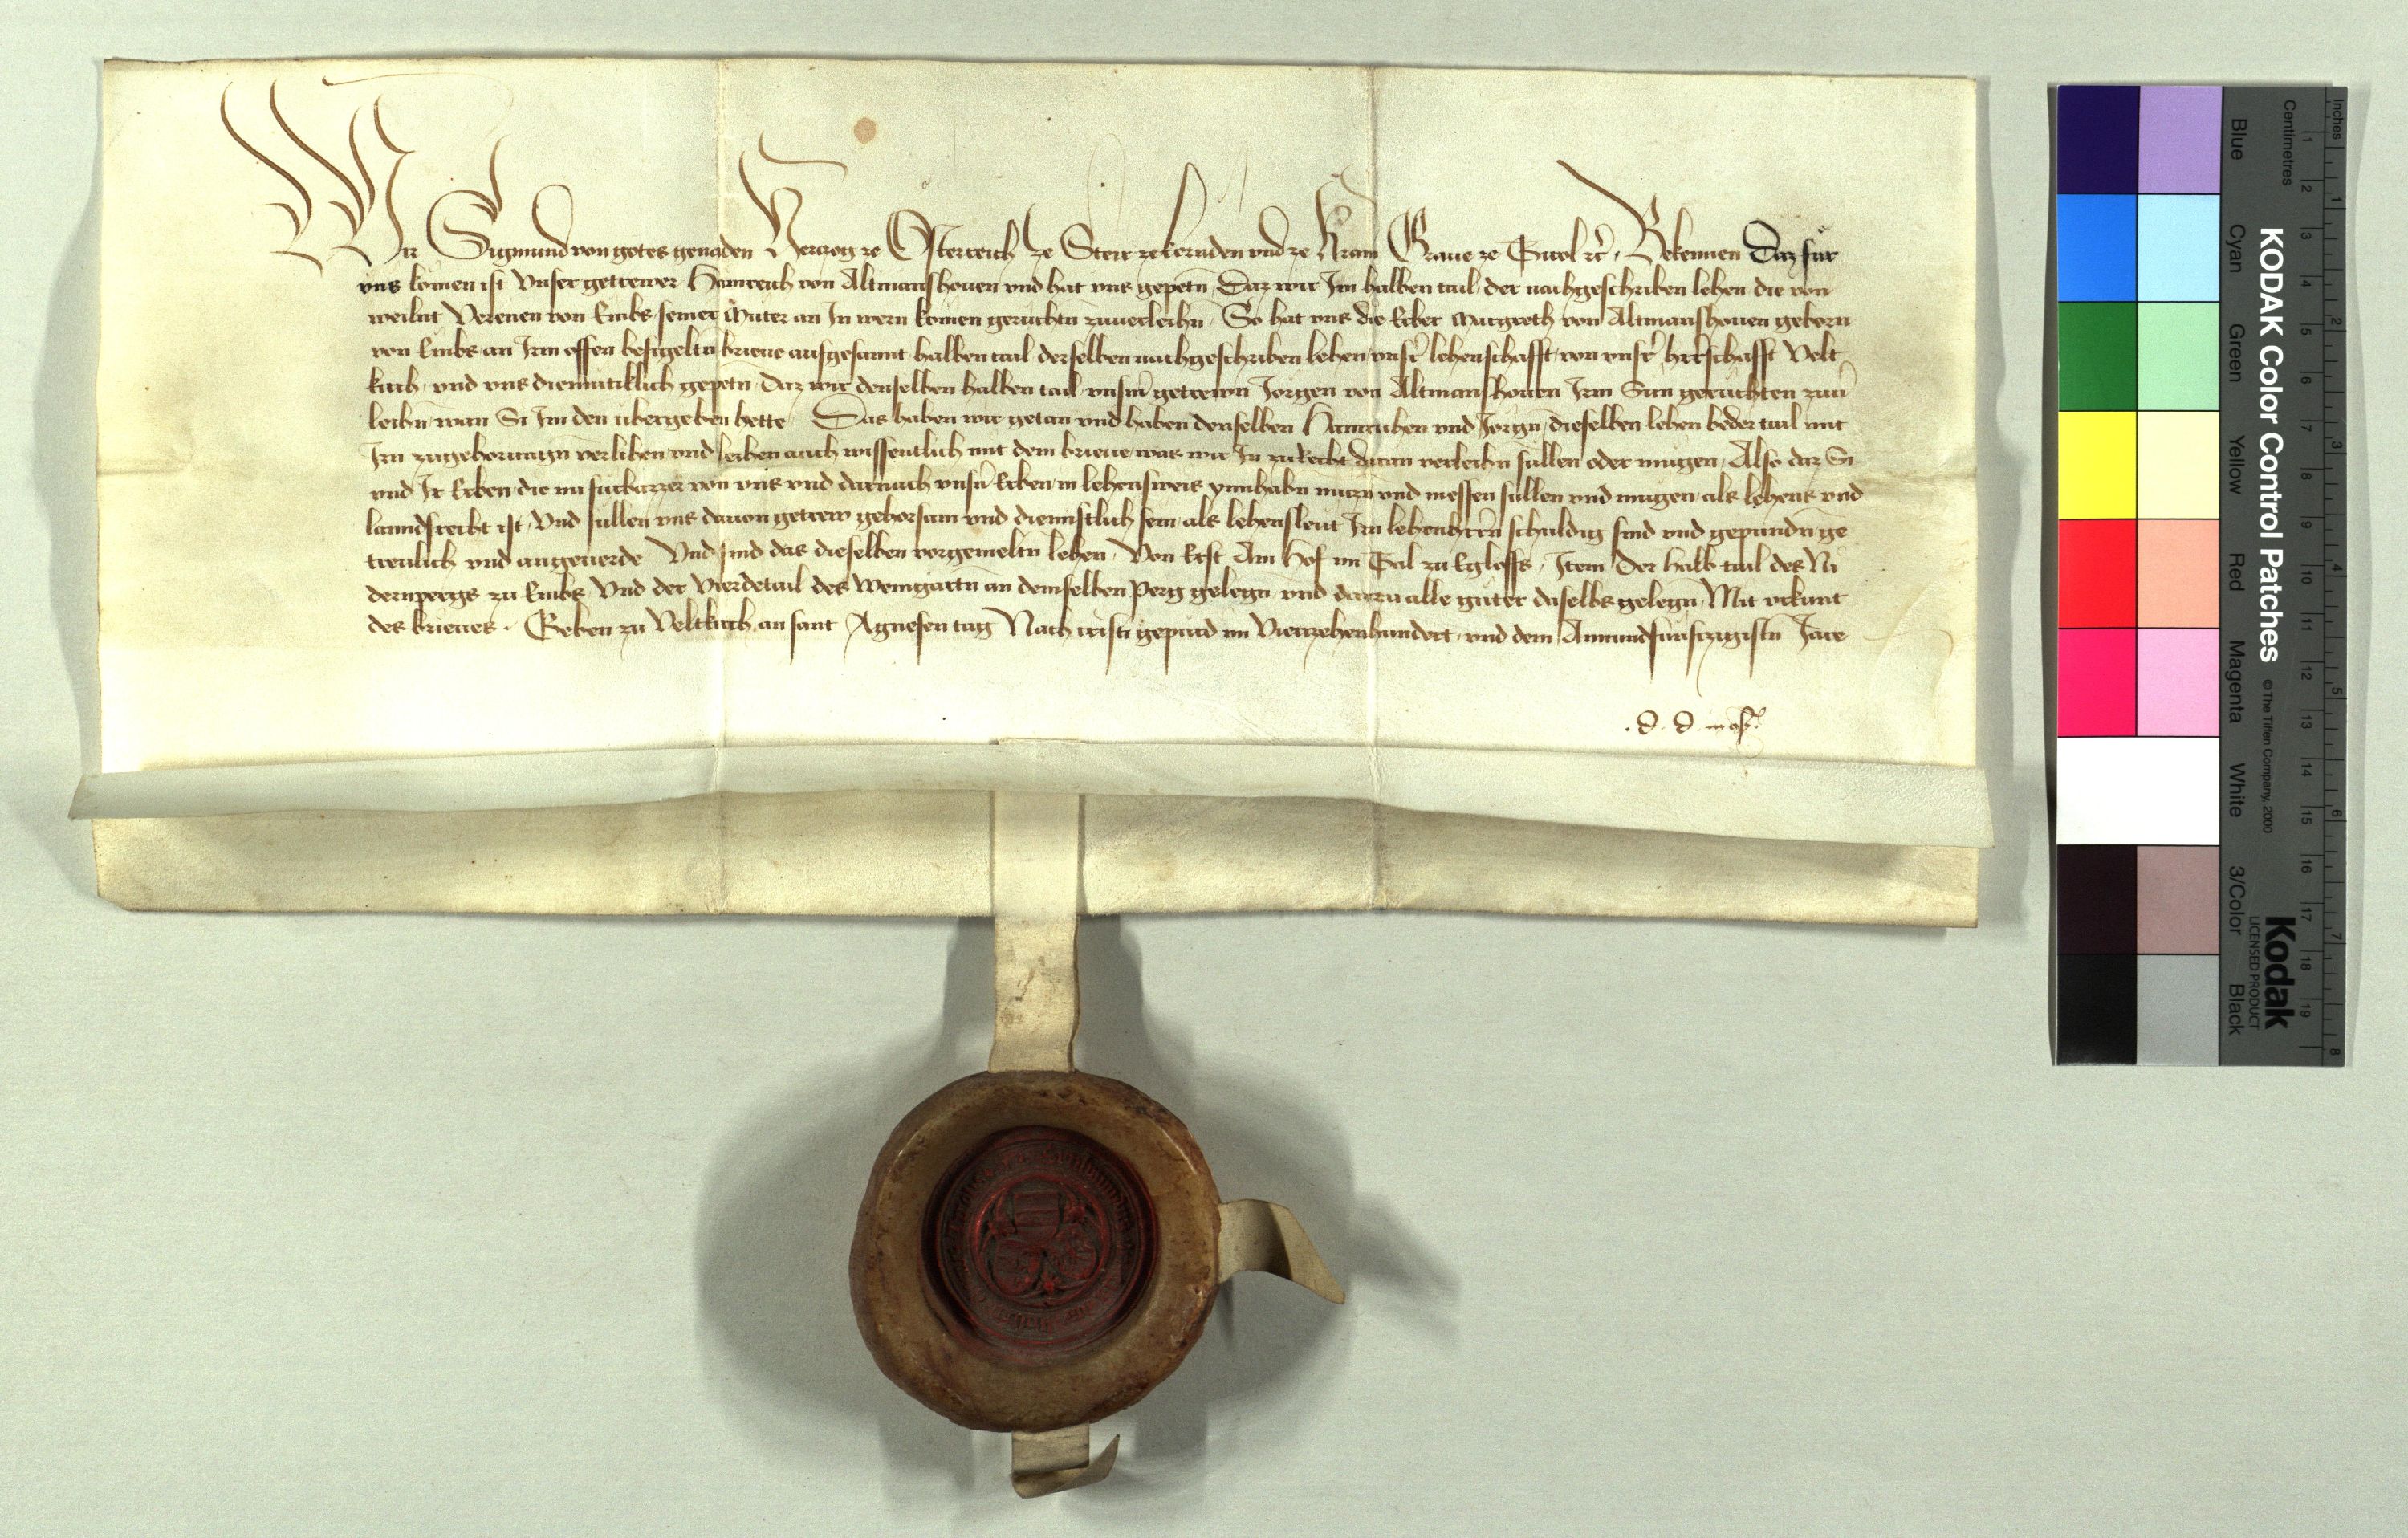 Wir Sigmund von gotes genaden Herczog ze Österreich ze Steir ze kernden vnd ze Krain Graue ze Tirol etc̃. Bekennen Daz für
vns komen ist Vnser getrewer Hainreich von Altmanshouen vnd hat vns gepetn̄, Daz wir Im halben tail der nachgeschriben lehen die von
weilnt Verenen von Embs seiner Můter an In wern komen geruchtn̄ zuuerleihn̄. So hat vns die Erber Margreth von Altmanshouen geborn
von Embs an Irm offen besigeltn̄ brieue aufgesannt halben tail derselben nachgeschriben lehen vnsr̄ lehenschafft von vnsr̄ hrr̄schafft Velt
kirch, vnd vns diemütiklich gepetn̄, Daz wir denselben halben tail vnsm̄ getrewn̄ Jorgen von Altmanshouen Irm Sun geruchten zuū
leihn̄, wan Si Im den übergeben hette. Das haben wir getan vnd haben denselben Hainrichen vnd Jorgn̄, dieselben lehen beder tail mit
Irn zugehorungn̄ verlihen vnd leihen auch wissentlich mit dem brieue, was wir In zu Recht daran verleihn̄ süllen oder mugen, Also daz Si
vnd Ir Erben die nu furbazzer von vns vnd darnach vnsn̄ Erben in lehensweis ynnhabn̄ nuczn̄ vnd niessen süllen vnd mugen als lehens vnd
lanndsrecht ist, Vnd süllen vns dauon getrew gehorsam vnd diennstlich sein, als lehensleut Irn lehenhern̄ schuldig sind vnd gepundn̄ ge
treulich vnd angeuerde. Vnd sind das dieselben vorgemeltn̄ lehen. Von Erst Am Hof im Tal zu Egloffs, Item Der halb tail des Ni
dernpergs zu Embs Vnd der Vierdetail des Weingartn̄ an demselben Perg gelegn̄ vnd darzu alle güter daselbs gelegn̄. Mit vrkunt
des brieues. Geben zu Veltkirch an sant Agnesen tag Nach cristi gepurd im Vierzehenhundert vnd dem Ainundfunfczigistn̄ Jare
. d. d. in
KODAK Color Control Patches
© The Tiffen Company, 2000
Kodak
LICENSED PRODUCT
Blue Cyan Green Yellow Red Magenta White 3/Color Black
Centimetres 1 2 3 4 5 6 7 8 9 10 11 12 13 14 15 16 17 18 19
Inches 1 2 3 4 5 6 7 8